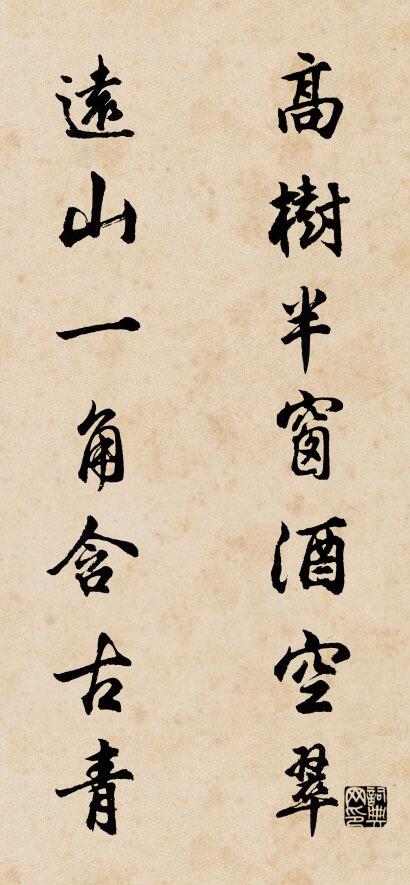 高樹半窗酒空翠
遠山一角含古青
詞典网印